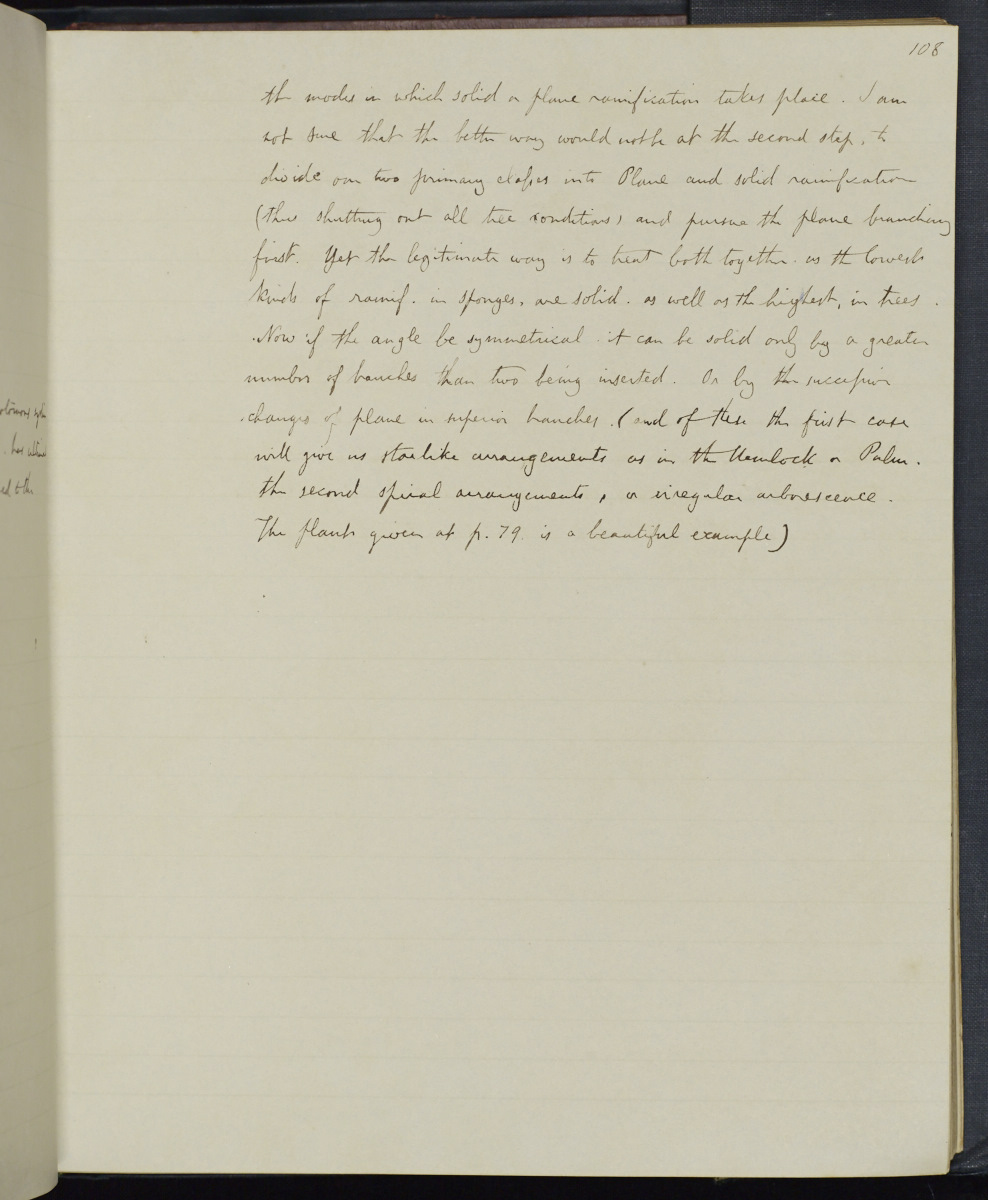 108
the modes in which solid or plane ramification takes place. I am
not sure that the better way would not be at the second step, to
divide our two primary classes into Plane and solid ramification
(thus shutting out all tree conditions, and pursue the plane branching
first. Yet the legitimate way is to treat both together. as the lowest
kinds of ramif. in sponges, are solid. as well as the highest, in trees.
Now if the angle be symmetrical. it can be solid only by a greater
number of branches than two being inserted. Or by the succession
changes of plane in superior branches. (and of these the first case
will give us starlike arrangements as in the Hemlock or Palm.
the second spiral arrangements, or irregular arborescence.
The plant given at p. 79. is a beautiful example)
has
ed to the